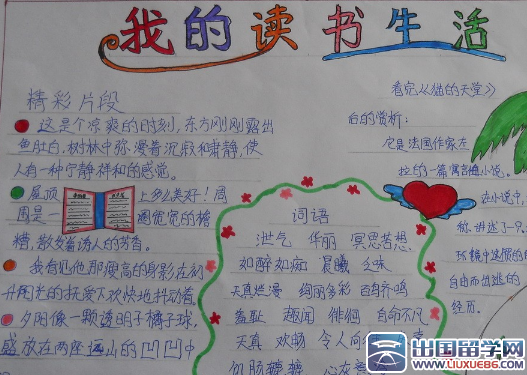 我的读书生活
精彩片段
这是个凉爽的时刻,东方刚刚露出
鱼肚白,树林中弥漫着沉寂和肃静,使
人有一种宁静祥和的感觉。
屋顶上多么美好!周
围是一圈宽宽的檐
糟,散发着诱人的芳香。
我看见他那瘦高的身影在初
升阳光的抚爱下欢快地抖动着
夕阳像一颗透明子橘子球,
盛放在两座远山的凹凹中
词语
泄气 华丽 冥思苦想
如醉如痴 晨曦 乏味
天真烂漫 绚丽多彩 百鸟齐鸣
羞耻 趣闻 徘徊 自命不凡
天真 欢畅 令人向
饥肠辘辘 心灰
看完《猫的天堂》
后的赏析:
它是法国作家左
拉的一篇寓言小说。
在小说中,
你讲述了一只
环境中
自由而出逃的
经历。
出国留学网
WWW.LIUXUE86.COM